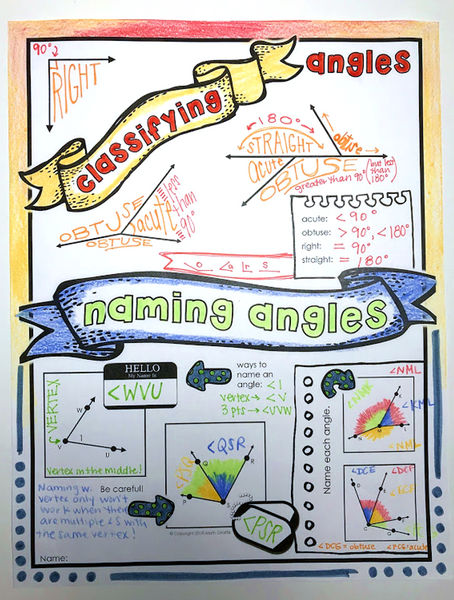 classifying
angles
90°
RIGHT
180°
STRAIGHT
acute
OBTUSE
obtuse
greater than 90° (but less than 180°)
OBTUSE
acute
less than 90°
OBTUSE
acute: < 90°
obtuse: > 90°, < 180°
right: = 90°
straight: = 180°
naming angles
VERTEX
W
V
1
U
Vertex in the middle!
HELLO
My Name Is
<WVU
ways to name an angle: <1
vertex → <V
3 pts → <UVW
Naming w.
vertex only won't
work when there
are multiple <s with
the same vertex!
Be careful!
<QSR
Q
R
P
<PSR
© Copyright 2014 Math Giraffe
Name each angle.
<NML
<KML
<DCE
<DCF
<ECF
<DCE = obtuse
Name: